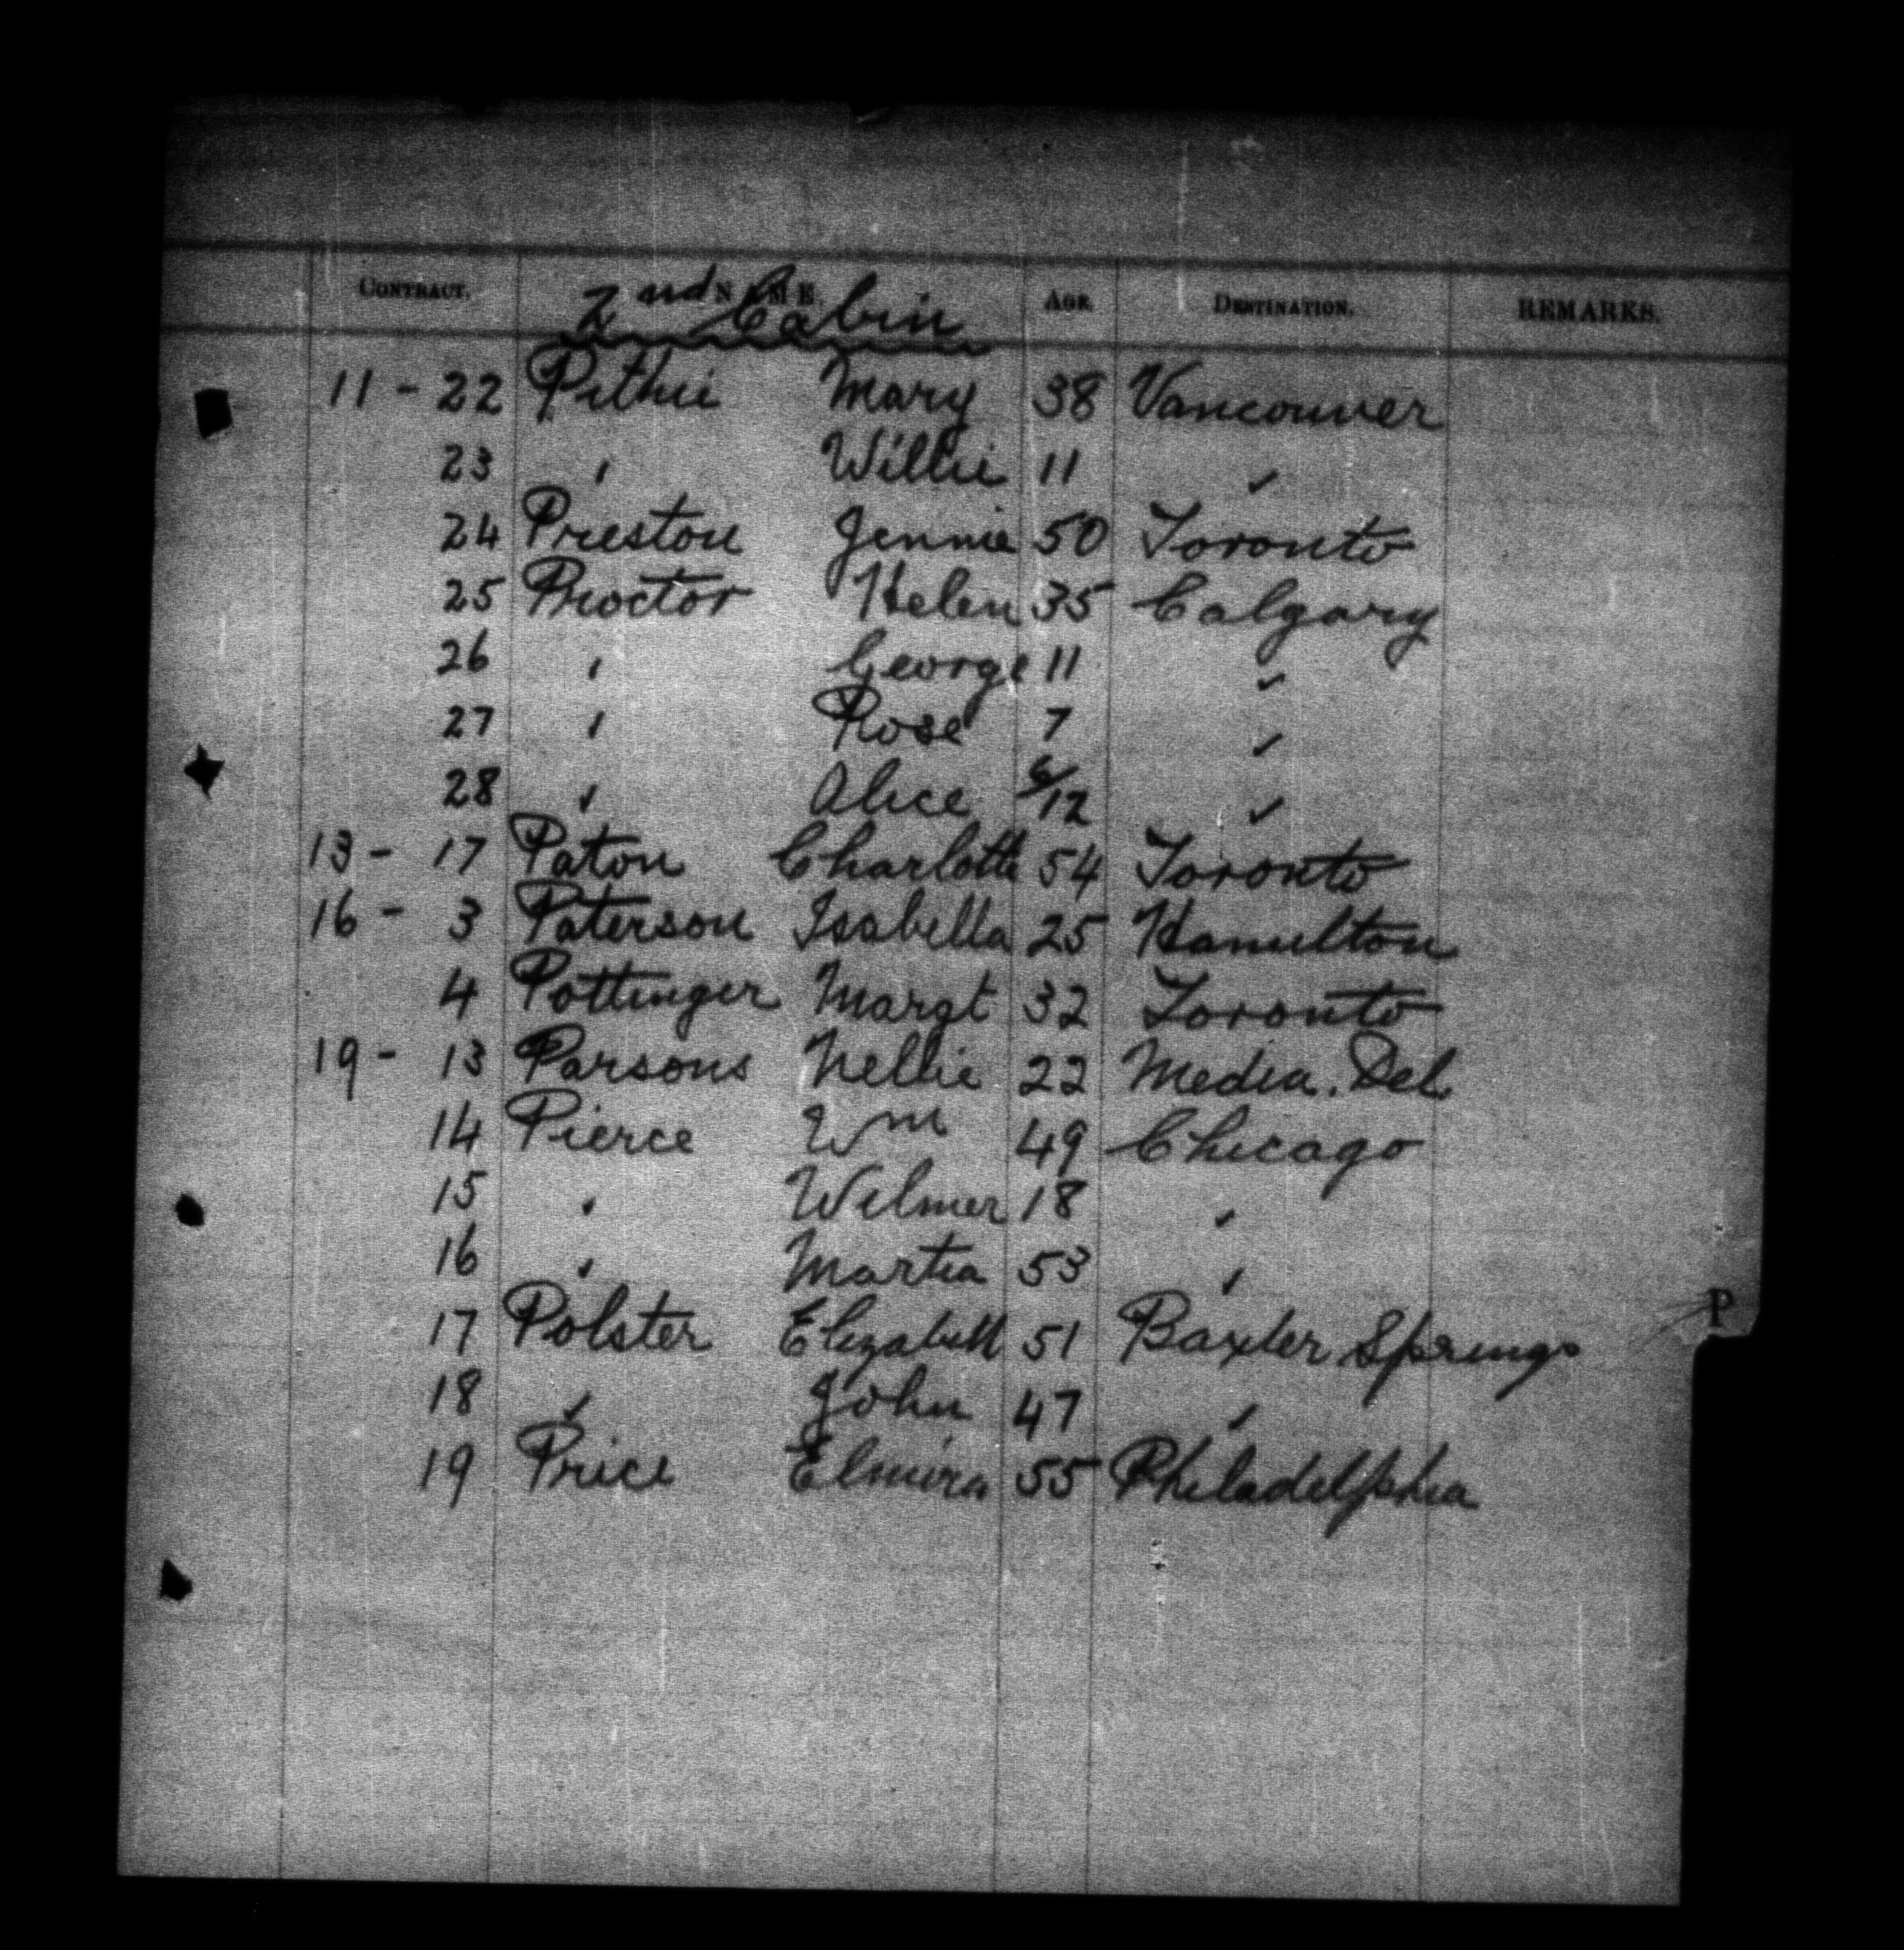 CONTRACT. NAME. AGE. DESTINATION. REMARKS.
2nd Cabin
11 - 22 Pithie Mary 38 Vancouver
23 " Willie 11 "
24 Preston Jennie 50 Toronto
25 Proctor Helen 35 Calgary
26 " George 11 "
27 " Rose 7 "
28 " Alice 6/12 "
13 - 17 Paton Charlotte 54 Toronto
16 - 3 Paterson Isabella 25 Hamilton
4 Pottinger Margt 32 Toronto
19 - 13 Parsons Nellie 22 Media. Del.
14 Pierce Wm 49 Chicago
15 " Wilmer 18 "
16 " Martia 53 "
P
17 Polster Elizabeth 51 Baxter Springs
18 " John 47 "
19 Price Elmira 55 Philadelphia